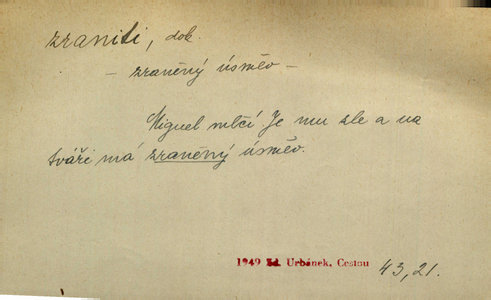 zraniti, dok.
– zraněný úsměv –
Miguel mlčí. Je mu zle a na
tváři má zraněný úsměv.
1949 Zd. Urbánek, Cestou 43,21.